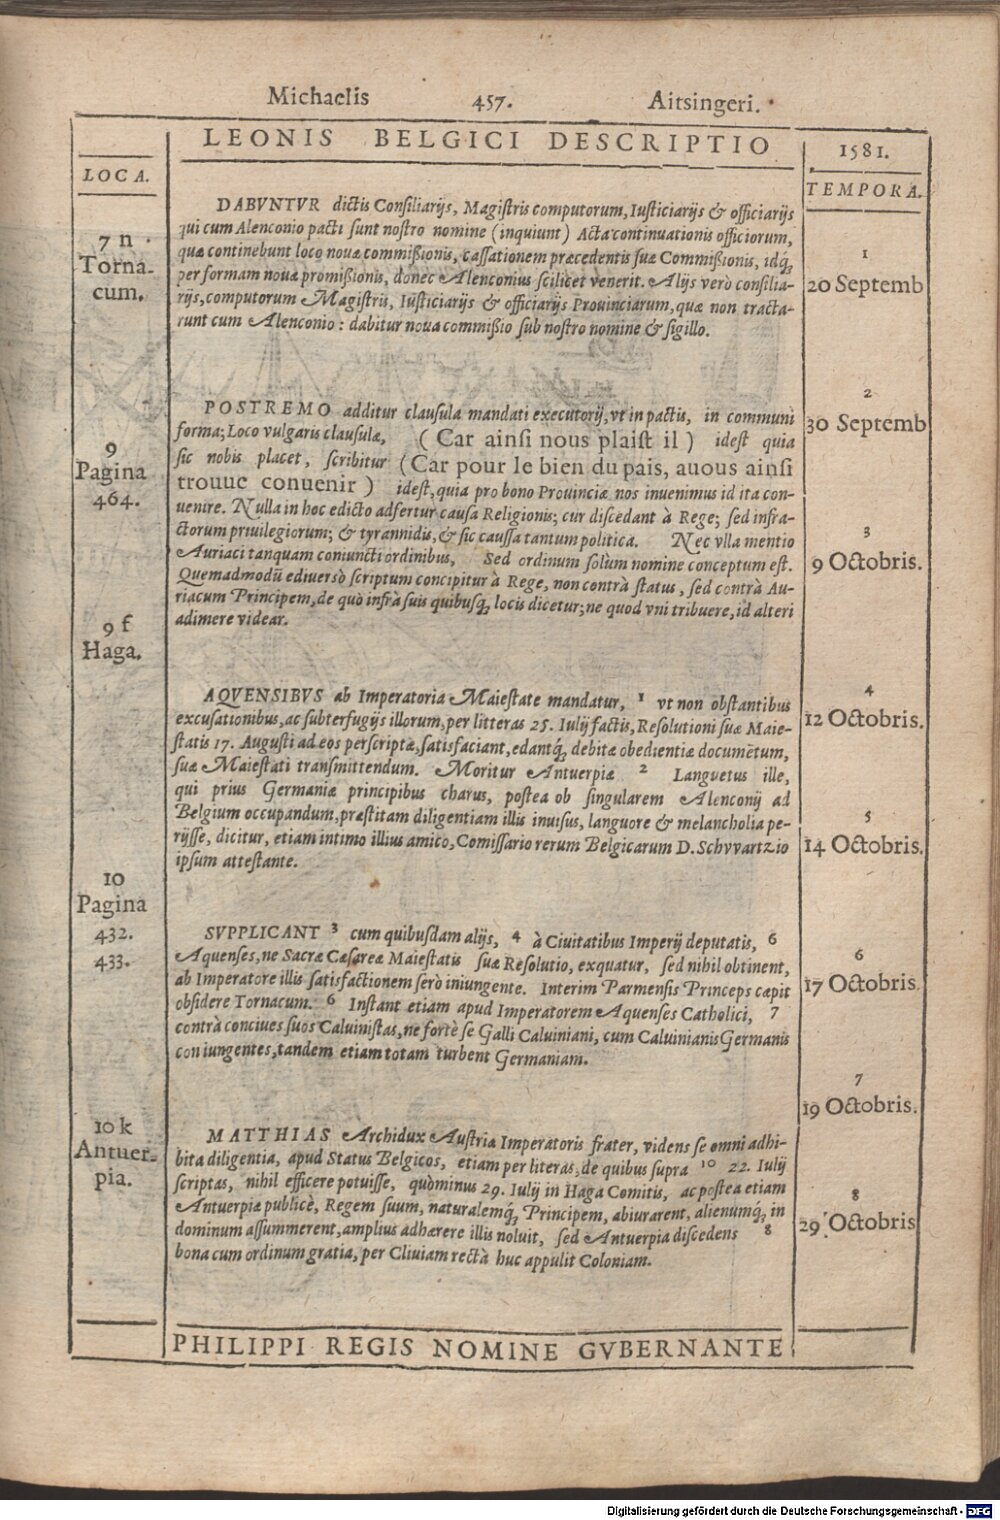 Michaelis 457. Aitsingeri.
LEONIS BELGICI DESCRIPTIO
LOCA.
7 n
Torna-
cum.
9
Pagina
464.
9 f
Haga.
10
Pagina
432.
433.
10 k
Antuer-
pia.
DABVNTVR dictis Consiliarijs, Magistris computorum, Iusticiarijs & officiarijs
qui cum Alenconio pacti sunt nostro nomine (inquiunt) Acta continuationis officiorum,
quæ continebunt loco nouæ commißionis, cassationem præcedentis suæ Commißionis, idq́,
per formam nouæ promißionis, donec Alenconius scilicet venerit. Alijs verò consilia-
rijs, computorum Magistris, Iusticiarijs & officiarijs Prouinciarum, quæ non tracta-
runt cum Alenconio: dabitur noua commißio sub nostro nomine & sigillo.
POSTREMO additur clausula mandati executorij, vt in pactis, in communi
forma; Loco vulgaris clausulæ, (Car ainsi nous plaist il) idest quia
sic nobis placet, scribitur (Car pour le bien du pais, auous ainsi
trouue conuenir) idest, quia pro bono Prouinciæ nos inuenimus id ita con-
uenire. Nulla in hoc edicto adfertur causa Religionis; cur discedant à Rege; sed infra-
ctorum priuilegiorum; & tyrannidis, & sic caussa tantum politica. Nec vlla mentio
Auriaci tanquam coniuncti ordinibus, Sed ordinum solùm nomine conceptum est.
Quemadmodū ediuersò scriptum concipitur à Rege, non contrà status, sed contrà Au-
riacum Principem, de quò infrà suis quibusq́, locis dicetur; ne quod vni tribuere, id alteri
adimere videar.
AQVENSIBVS ab Imperatoria Maiestate mandatur, 1 vt non obstantibus
excusationibus, ac subterfugijs illorum, per litteras 25. Iulij factis, Resolutioni suæ Maie-
statis 17. Augusti ad eos perscriptæ, satisfaciant, edantq́, debitæ obedientiæ documētum,
suæ Maiestati transmittendum. Moritur Antuerpiæ 2 Languetus ille,
qui prius Germaniæ principibus charus, postea ob singularem Alenconij ad
Belgium occupandum, præstitam diligentiam illis inuisus, languore & melancholia pe-
rijsse, dicitur, etiam intimo illius amico, Comissario rerum Belgicarum D. Schvvartzio
ipsum attestante.
SVPPLICANT 3 cum quibusdam alijs, 4 à Ciuitatibus Imperij deputatis, 6
Aquenses, ne Sacræ Cæsareæ Maiestatis suæ Resolutio, exquatur, sed nihil obtinent,
ab Imperatore illis satisfactionem serò iniungente. Interim Parmensis Princeps cæpit
obsidere Tornacum. 6 Instant etiam apud Imperatorem Aquenses Catholici, 7
contrà conciues suos Caluinistas, ne fortè se Galli Caluiniani, cum Caluinianis Germanis
coniungentes, tandem etiam totam turbent Germaniam.
MATTHIAS Archidux Austriæ Imperatoris frater, videns se omni adhi-
bita diligentia, apud Status Belgicos, etiam per literas, de quibus supra 10 22. Iulij
scriptas, nihil efficere potuisse, quòminus 29. Iulij in Haga Comitis, ac postea etiam
Antuerpiæ publicè, Regem suum, naturalemq́, Principem, abiurarent, alienumq́, in
dominum assummerent, amplius adhærere illis noluit, sed Antuerpia discedens 8
bona cum ordinum gratia, per Cliuiam rectà huc appulit Coloniam.
1581.
TEMPORA.
1
20 Septemb
2
30 Septemb
3
9 Octobris.
4
12 Octobris.
5
14 Octobris.
6
17 Octobris
7
19 Octobris.
8
29 Octobris
PHILIPPI REGIS NOMINE GVBERNANTE
Digitalisierung gefördert durch die Deutsche Forschungsgemeinschaft - DFG